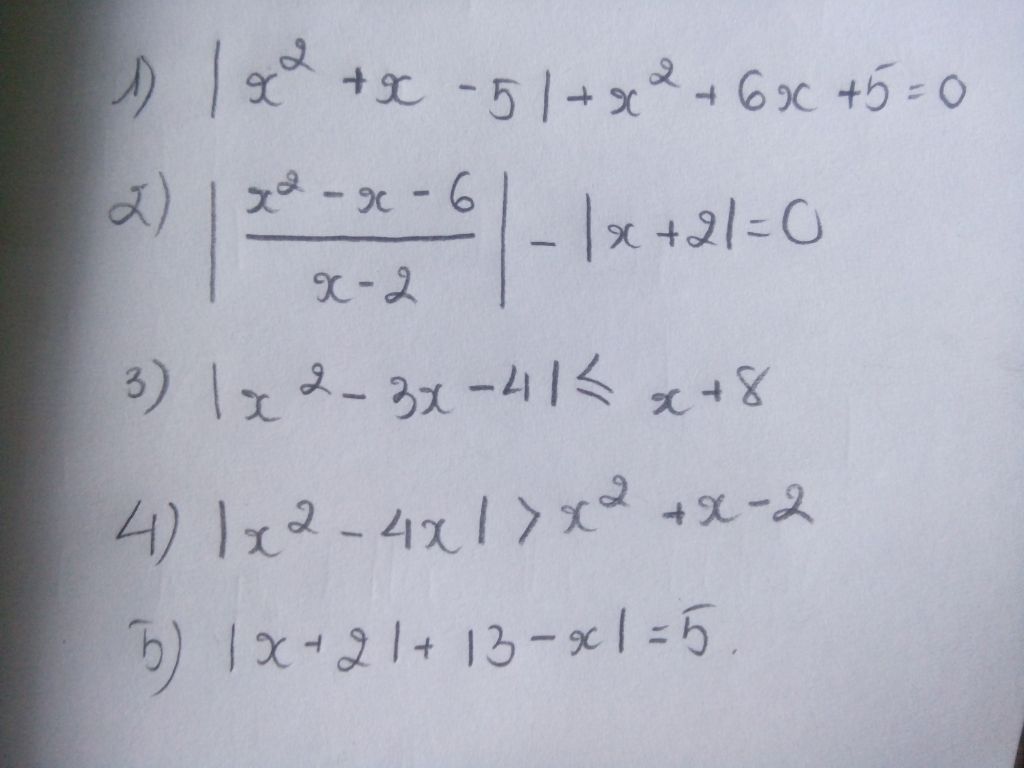 1) |x² + x - 5| + x² + 6x + 5 = 0
2) |(x² - x - 6)/(x - 2)| - |x + 2| = 0
3) |x² - 3x - 4| ⩽ x + 8
4) |x² - 4x| > x² + x - 2
5) |x + 2| + |3 - x| = 5.